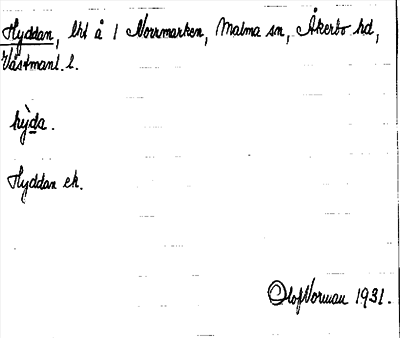 Hyddan, bht å 1 Norrmarken, Malma sn, Åkerbo hd,
Västmanl. l.
hỳda.
Hyddan ek.
Olof Norman 1931.